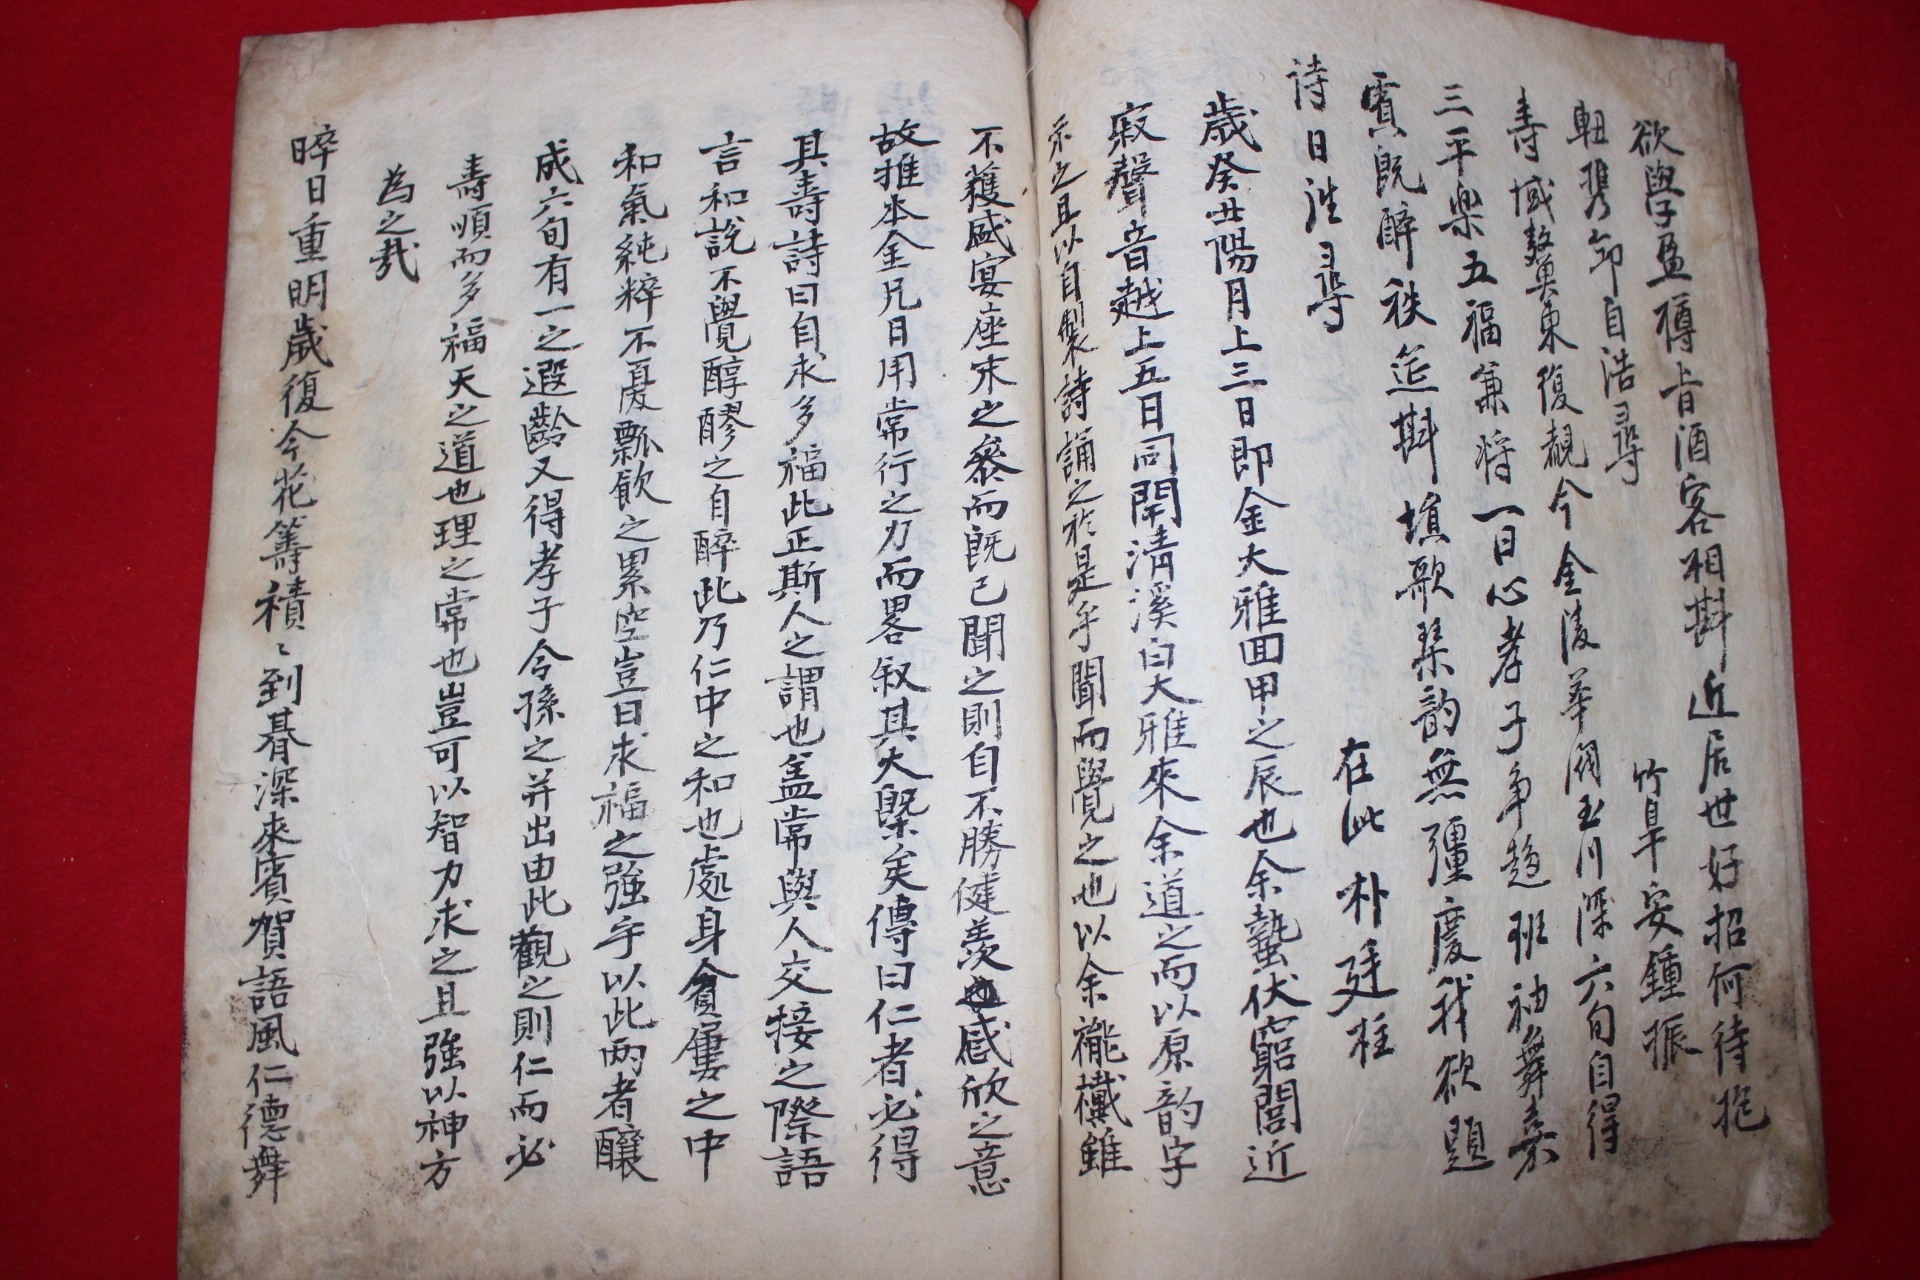 欲學盈樽旨酒客相斟近居世好招何待抱
軫携節自浩尋
竹阜安鍾振
壽域鰲奠東復覩今金陵華閥玉川深六旬自得
三平樂五福兼將一日心孝子争趨班袖舞嘉
賓旣醉秩筵斟塤歌琴韵無彊慶我欲題
詩日往尋
在此朴廷柱
歲癸丑陽月上三日即金大雅回甲之辰也余蟄伏窮閭近
寂聲音越上五日同閈淸溪白大雅來余道之而以原韵字
示之且以自製詩誦之於是乎聞而覺之也以余襶雖
不獲盛宴座末之叅而旣已聞之則自不勝健羨感欣之意
故推本金兄日用常行之力而畧叙其大槩矣傳曰仁者必得
其壽詩曰自求多福此正斯人之謂也盖常與人交接之際語
言和說不覺醇醪之自醉此乃仁中之和也處身貧窶之中
和氣純粹不憂瓢飮之累空豈曰求福之强乎以此兩者釀
成六旬有一之遐齡又得孝子令孫之并出由此觀之則仁而必
壽順而多福天之道也理之常也豈可以智力求之且强以神方
為之哉
晬日重明歲復今花籌積〻到碁深來賓賀語風仁德舞